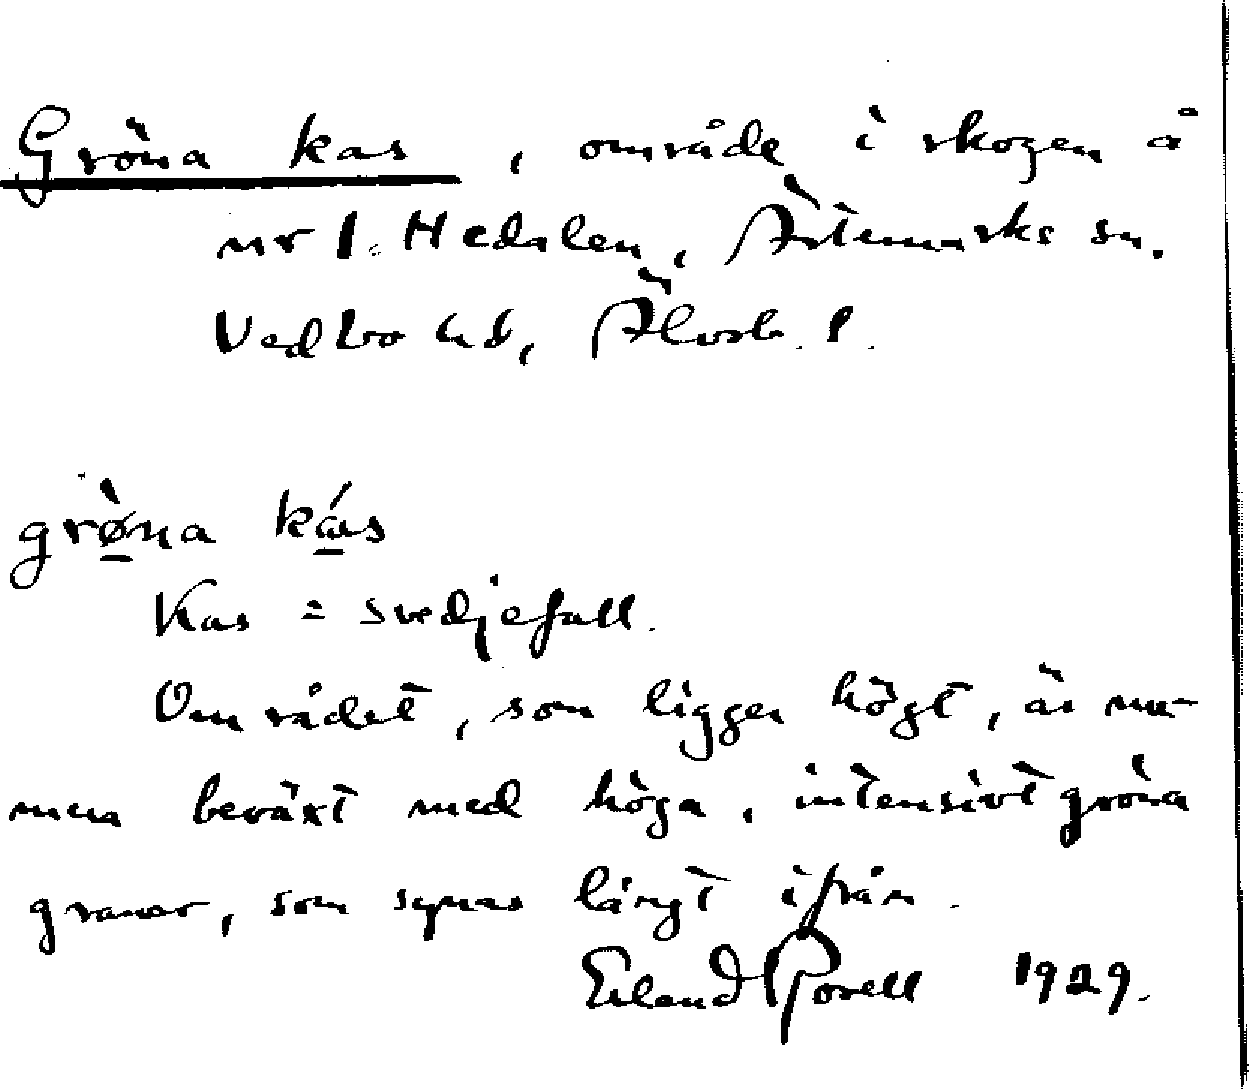 Gröna kas, område i skogen å
nr 1. Hedalen, Ärtemarks sn.
Vedbo hd, Älvsb. l.
grø̀na kás
Kas = svedjefall.
Området, som ligger högt, är nu-
mera beväxt med höga, intensivt gröna
granar, som synas långt ifrån.
Erland Rosell 1929.